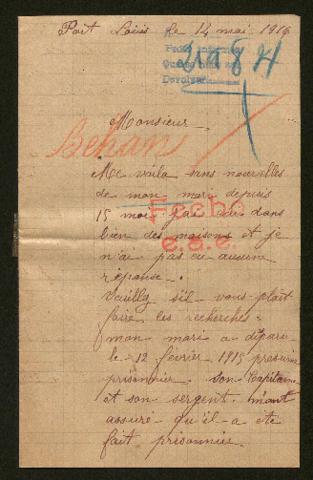 Port Louis le 14 mai 1916
Pedir informe
21984
Devolver
Monsieur
Behan
Me voila sans nouvelles
de mon mari depuis
15 mois. J'ai dans
Fecho
bien des maisons et je
e.s.e.
n'ai pas eu aucun
réponse.
Veuillez s'il vous plait
faire les recherches.
mon mari a disparu
le 12 février 1915 presumé
prisonnier. Son Capitaine
et son sergent m'ont
assuré qu'il a ete
fait prisonnier.